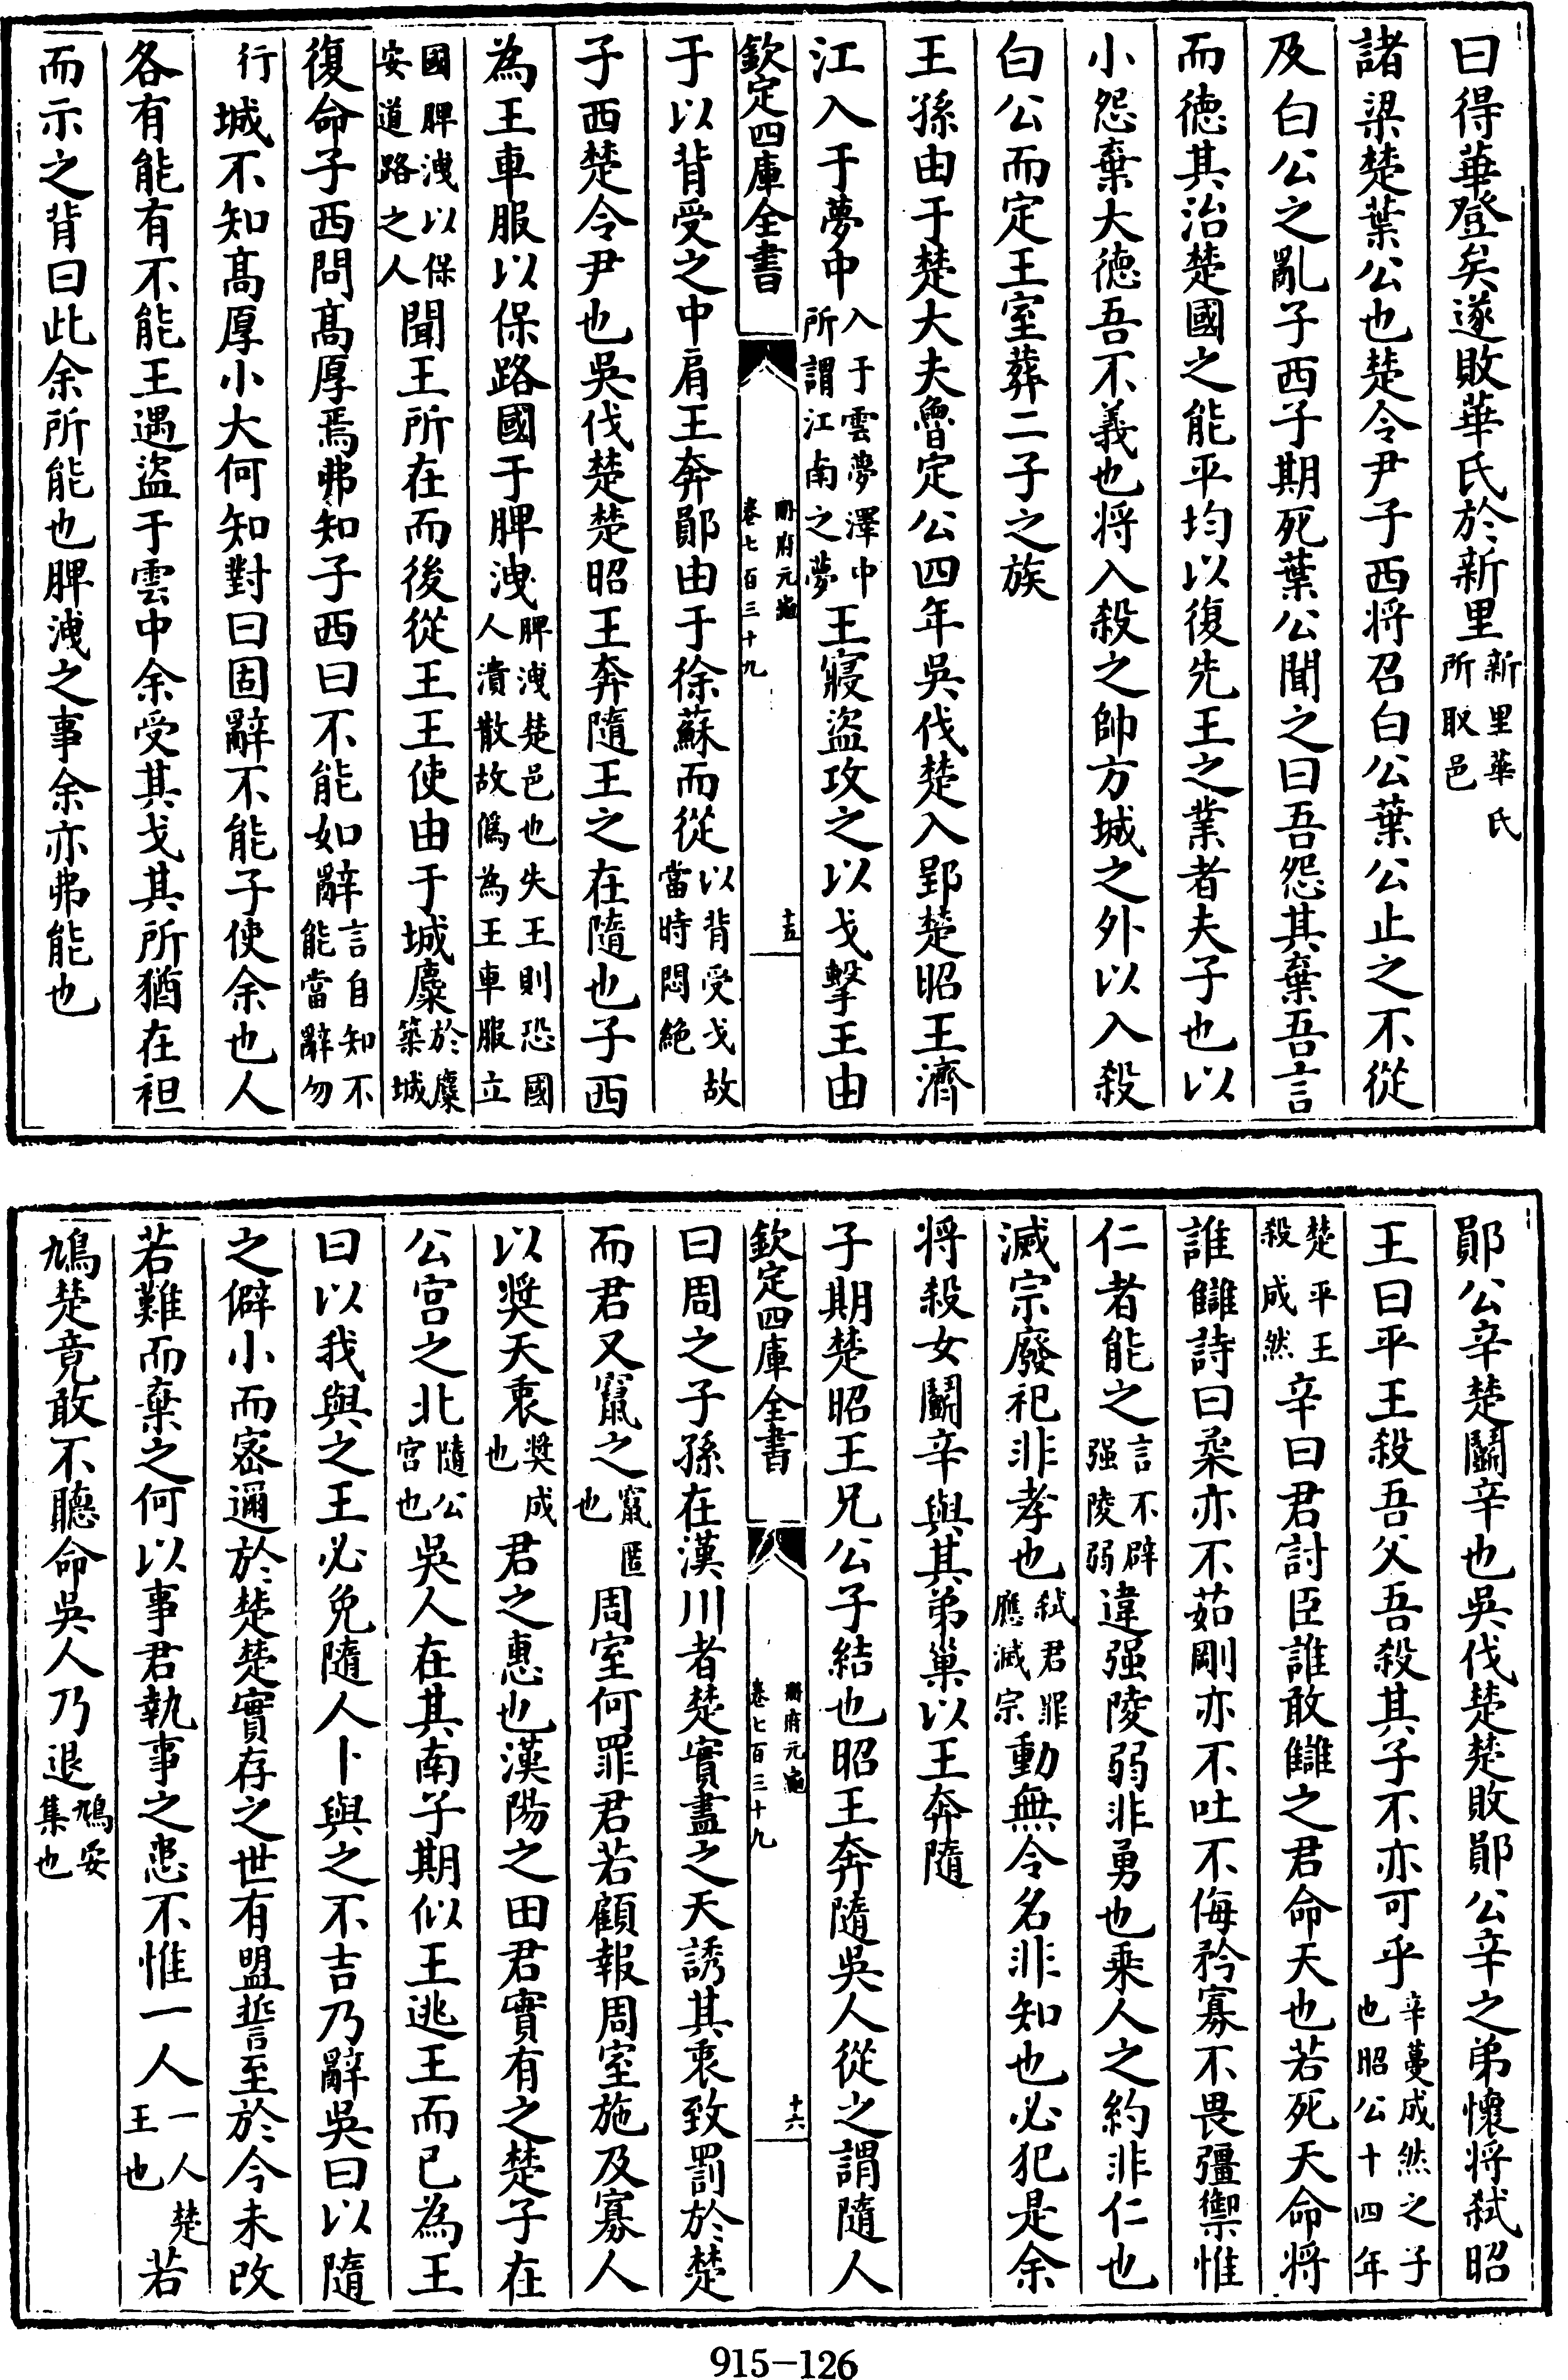 曰得華登矣遂敗華氏於新里新里華氏所取邑
諸梁楚葉公也楚令尹子西將召白公葉公止之不從
及白公之亂子西子期死葉公聞之曰吾怨其棄吾言
而德其治楚國之能平均以復先王之業者夫子也以
小怨棄大德吾不義也將入殺之帥方城之外以入殺
白公而定王室葬二子之族
王孫由于楚大夫魯定公四年吳伐楚入郢楚昭王濟
江入于夢中入于雲夢澤中所謂江南之夢王寢盜攻之以戈擊王由
欽定四庫全書
冊府元龜
卷七百三十九
十五
于以背受之中肩王奔鄖由于徐蘇而從以背受戈故當時悶絶
子西楚令尹也吳伐楚楚昭王奔隨王之在隨也子西
為王車服以保路國于脾洩脾洩楚邑也失王則恐國人潰散故偽為王車服立
國脾洩以保安道路之人聞王所在而後從王王使由于城麋於麋築城
復命子西問髙厚焉弗知子西曰不能如辭言自知不能當辭勿
行城不知髙厚小大何知對曰固辭不能子使余也人
各有能有不能王遇盜于雲中余受其戈其所猶在袒
而示之背曰此余所能也脾洩之事余亦弗能也
鄖公辛楚鬭辛也吳伐楚楚敗鄖公辛之弟懷將弑昭
王曰平王殺吾父吾殺其子不亦可乎辛蔓成然之子也昭公十四年
楚平王殺成然辛曰君討臣誰敢讎之君命天也若死天命將
誰讎詩曰桒亦不茹剛亦不吐不侮矜寡不畏彊禦惟
仁者能之言不辟强陵弱違强陵弱非勇也乘人之約非仁也
滅宗廢祀非孝也弑君罪應滅宗動無令名非知也必犯是余
將殺女鬭辛與其弟巢以王奔隨
子期楚昭王兄公子結也昭王奔隨吳人從之謂隨人
欽定四庫全書
冊府元龜
卷七百三十九
十六
曰周之子孫在漢川者楚實盡之天誘其衷致罰於楚
而君又竄之竄匿也周室何罪君若顧報周室施及寡人
以奬天衷奬成也君之惠也漢陽之田君實有之楚子在
公宫之北隨公宫也吳人在其南子期似王逃王而已為王
曰以我與之王必免隨人卜與之不吉乃辭吳曰以隨
之僻小而宻邇於楚楚實存之世有盟誓至於今未改
若難而棄之何以事君執事之患不惟一人一人楚王也若
鳩楚竟敢不聽命吳人乃退鳩安集也
915-126